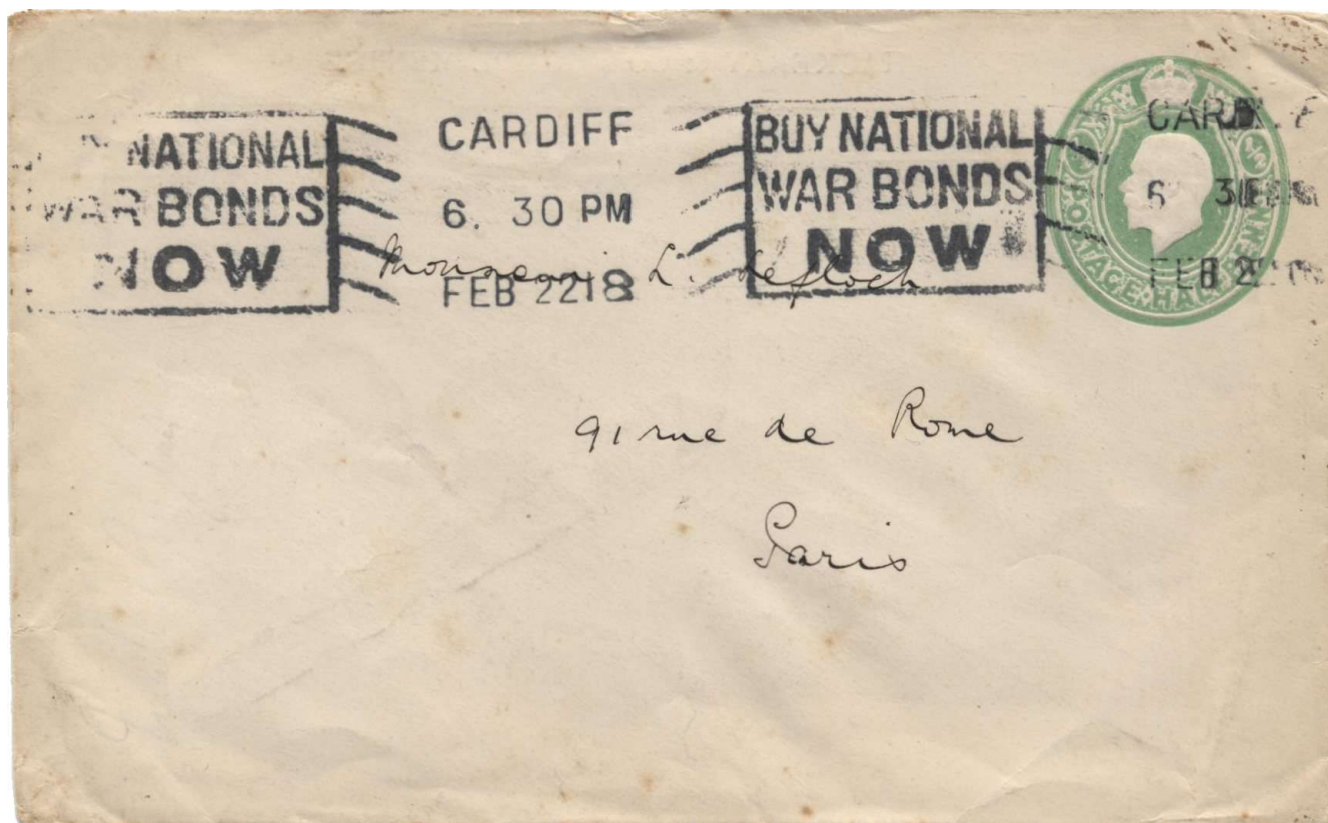 NATIONAL
WAR BONDS
NOW
CARDIFF
6. 30 PM
FEB 22 18
BUY NATIONAL
WAR BONDS
NOW
POSTAGE HALFPENNY
Monsieur L. Lefloch
91 rue de Rome
Paris